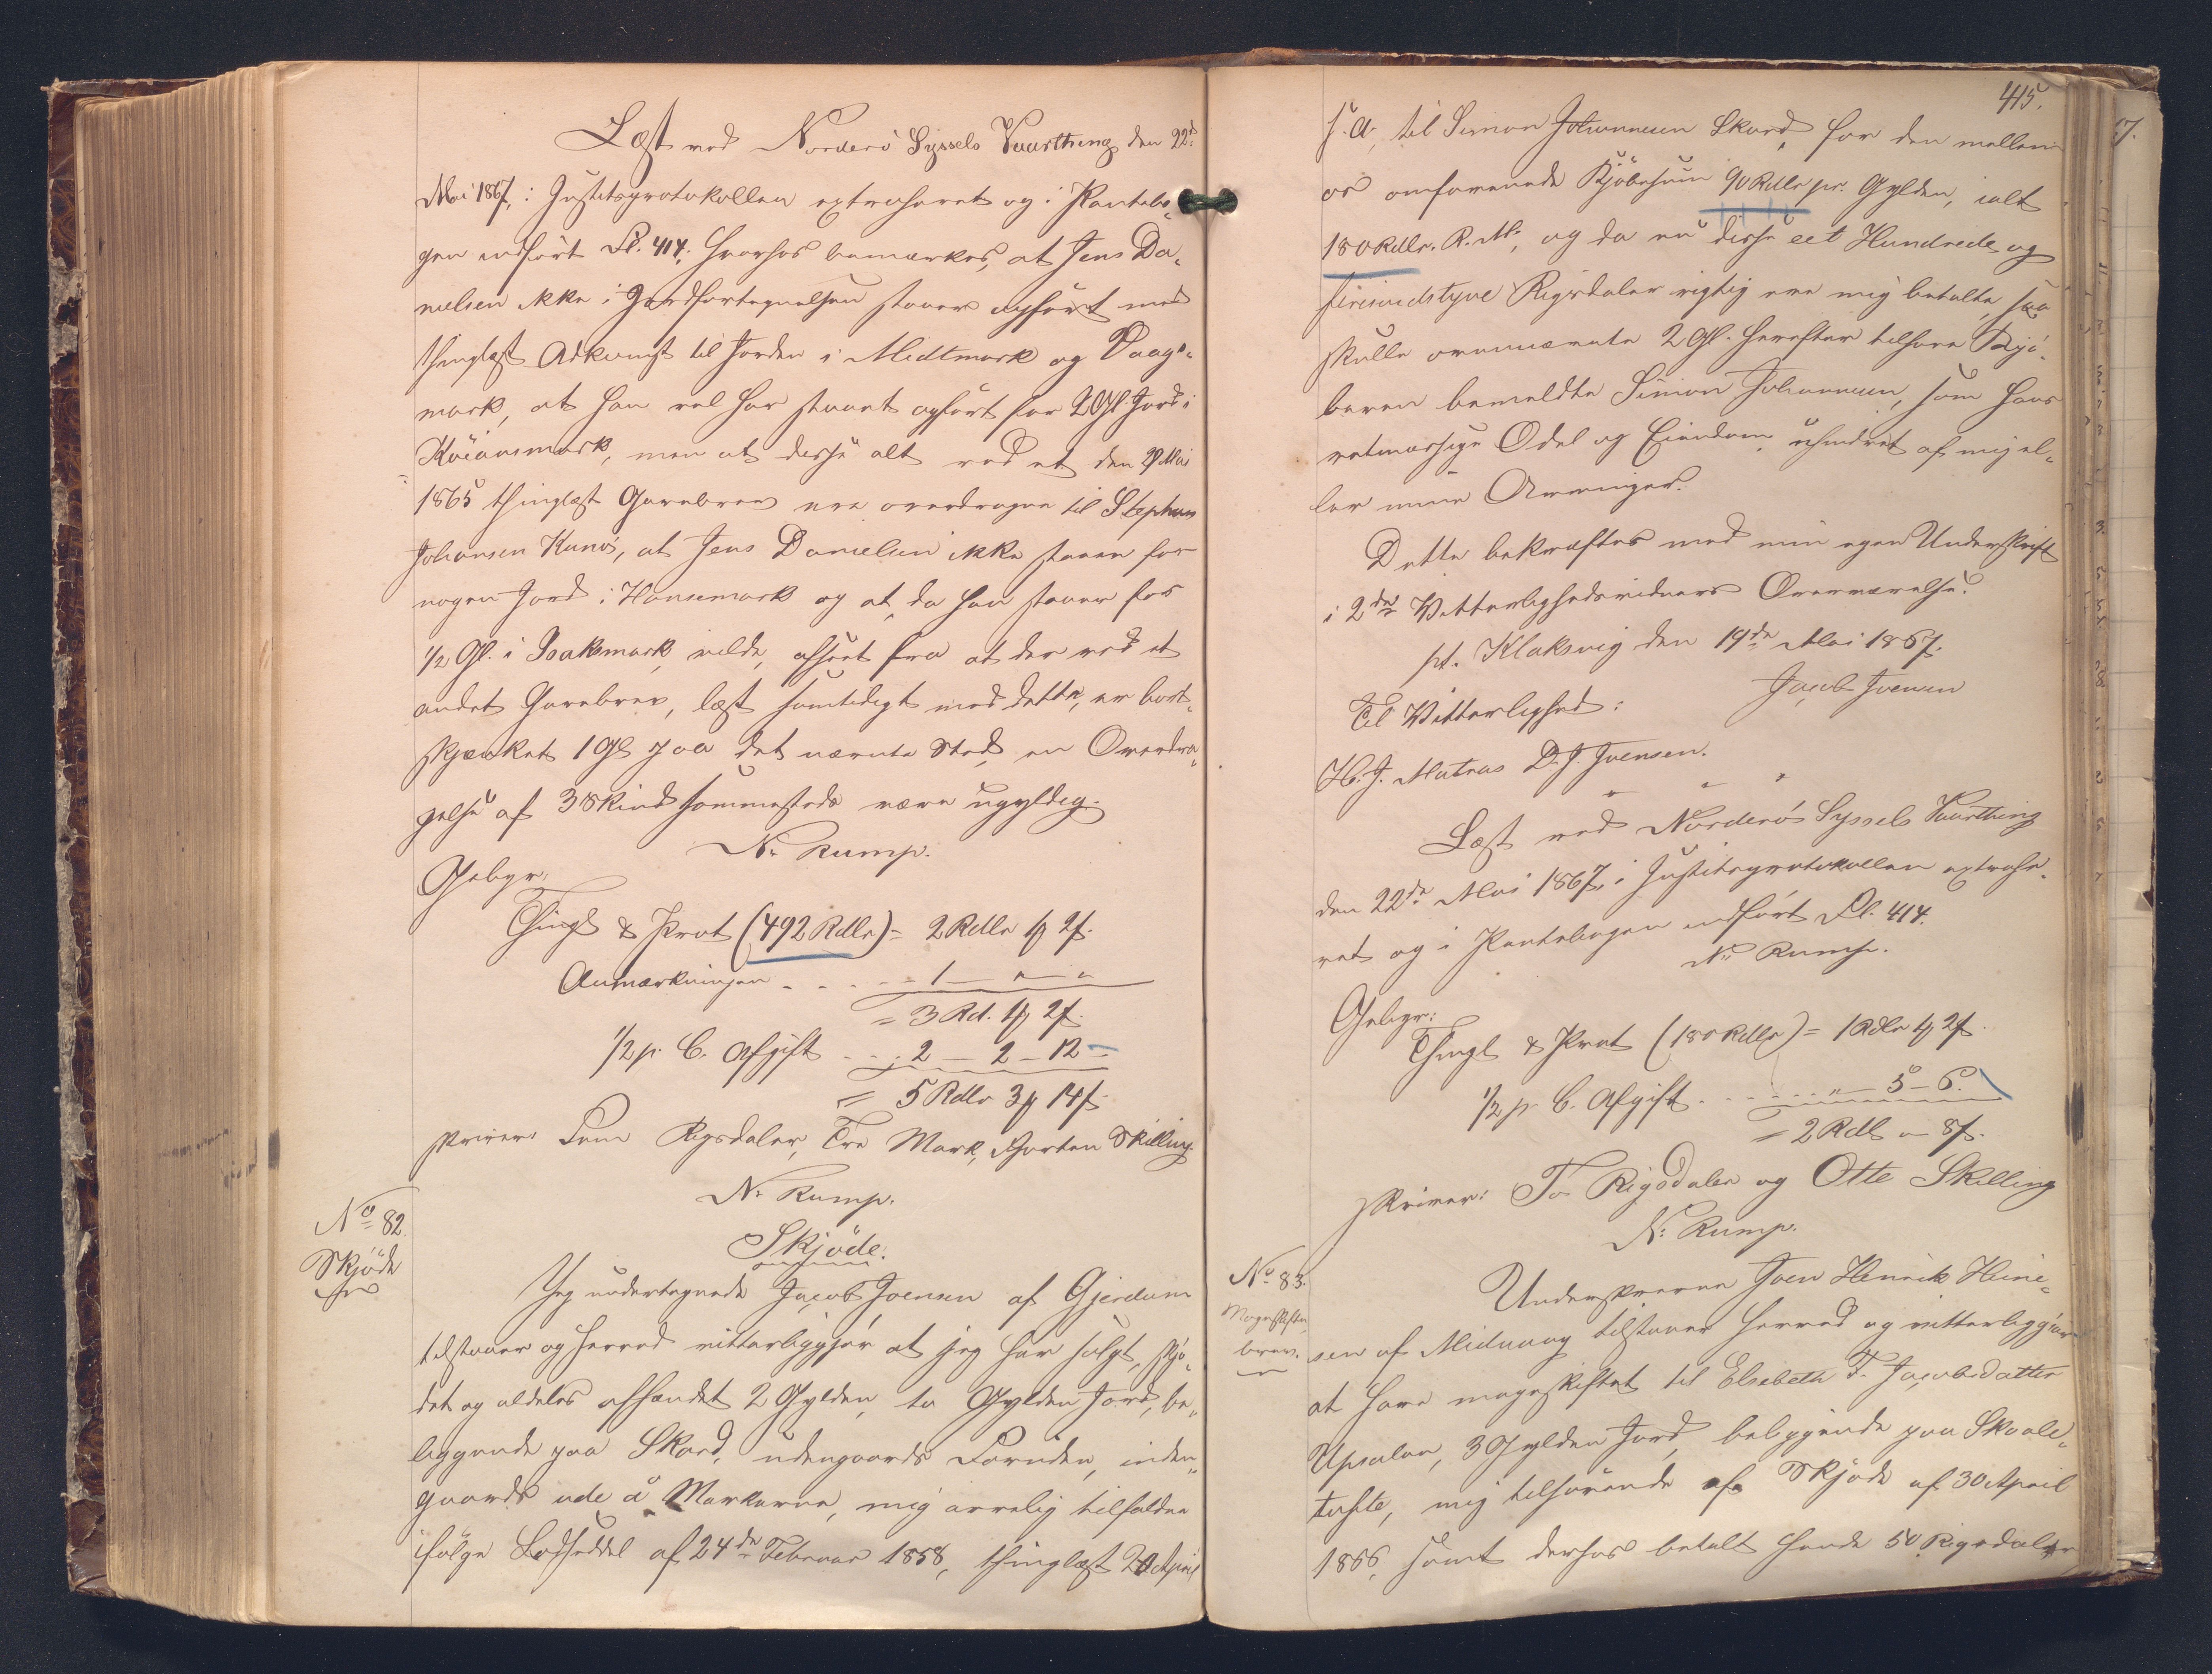 Læst ved Norderø Syssels Vaarthing den 22d
Mai 1867, i Justitsprotokollen extraheret og i Pantebo-
gen indført Fol. 414; hvorhos bemærkes, at Jens Da-
nielsen ikke i Jordfortegnelsen staaer opført med
thinglæst Adkomst til Jorden i Midtmark og Vaags-
mark, at han vel har staaet opført for 2 Gl Jord i
Kviansmark, men at disse alt ved et den 29 Mai
1865 thinglæst Gavebrev ere overdragne til Stephan
Johansen Kunø, at Jens Danielsen ikke staaer for
nogen Jord i Hansemark og at, da han staaer for
1/2 Gl. i Isaksmark, vilde, afseet fra at der ved et
andet Gavebrev, læst samtidigt med dette, er bort-
skjænket 1 Gl paa det nævnte Sted, en Overdra-
gelse af 3 Skind sammesteds være ugyldig.
N. Rump.
Gebyr:
Thingl & Prot (492 Rdlr) = 2 Rdlr 1 ꝥ 2 ß.
Anmærkningen - . . . - 1 — " — "
= 3 Rd. 1 ꝥ 2 ß.
1/2 p. C. Afgift - . . 2 — 2 — 12 -
= 5 Rdlr 3 ꝥ 14 ß
skriver: Fem Rigsdaler, Tre Mark, Fjorten Skilling.
N. Rump.
No 82.
Skjøde
Skjøde.
Jeg undertegnede Jacob Joensen af Gjerdum
tilstaaer og herved vitterliggjør at jeg har solgt, skjø-
det og aldeles afhændet 2 Gylden, to Gylden Jord, be-
liggende paa Skard, udengaards Foruden, inden-
gaards ude á Markarne, mig arvelig tilfalden
ifølge Lodseddel af 24de Februar 1858, thinglæst 20 April
415.
s. A., til Simon Johannesen Skard, for den mellem
os omforenede Kjøbesum 90 Rdlr pr. Gylden, ialt
180 Rdlr. R. M., og da nu disse eet Hundrede og
firesindstyve Rigsdaler rigtig ere mig betalte, saa
skulle ovennævnte 2 Gl. herefter tilhøre Kjø-
beren bemeldte Simon Johannesen, som hans
retmæssige Odel og Eiendom, uhindret af mig el-
ler mine Arvinger.
Dette bekræftes med min egen Underskrift
i 2de Vitterlighedsvidners Overværelse.
pt. Klaksvig den 19de Mai 1867.
Jacob Joensen
Til Vitterlighed:
H. J. Matras D. J. Joensen.
Læst ved Norderø Syssels Vaarthing
den 22de Mai 1867, i Justitsprotokollen extrahe-
ret og i Pantebogen indført Fol. 414.
N. Rump.
Gebyr:
Thingl & Prot (180 Rdlr) = 1 Rdlr 1 ꝥ 2 ß.
1/2 p. C. Afgift . . . . . . " — 5 — 6.
= 2 Rdl " 8 ß.
skriver: To Rigsdaler og Otte Skilling
N. Rump.
No 83.
Mageskifte-
brev.
Underskrevne Joen Henrik Heine-
sen af Midvaag tilstaaer herved og vitterliggjør
at have mageskiftet til Elsebeth F. Jacobsdatter
Upsalen, 3 Gylden Jord, beliggende paa Skaale-
tofte, mig tilhørende af Skjøde af 30 April
1856, samt derhos betalt hende 50 Rigsdaler